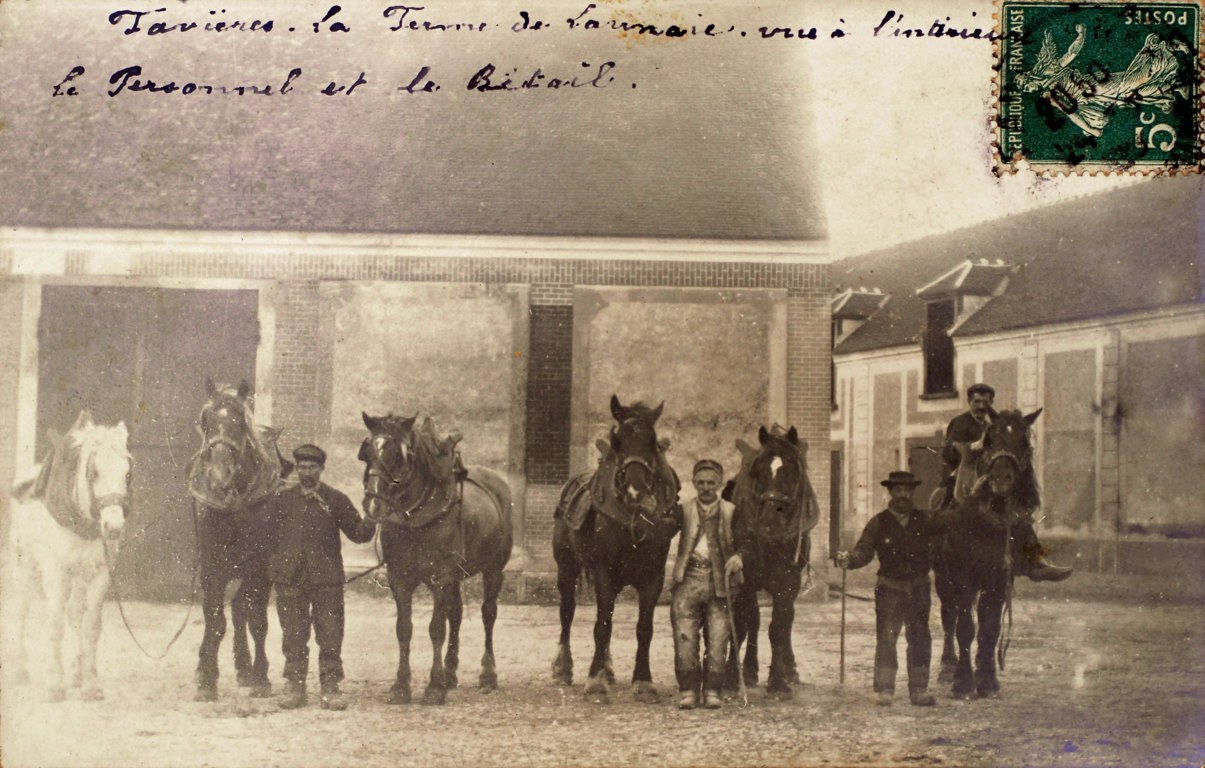 Favières. La Ferme de Launaie. vue à l'intérieur
Le Personnel et le Bétail.
RÉPUBLIQUE FRANÇAISE
POSTES
5c